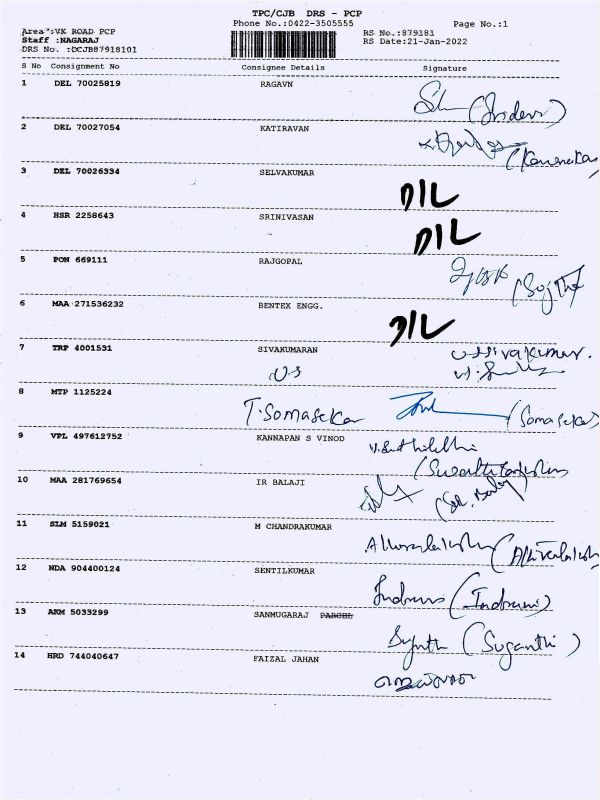 TPC/CJB DRS - PCP
Area :VK ROAD PCP
Phone No.:0422-3505555
Page No.:1
Staff :NAGARAJ
RS No.:879181
DRS No. :DCJB87918101
RS Date:21-Jan-2022
S No Consignment No Consignee Details Signature
1 DEL 70025819 RAGAVN
2 DEL 70027054 KATIRAVAN
3 DEL 70026334 SELVAKUMAR
D/L
4 HSR 2258643 SRINIVASAN
D/L
5 PON 669111 RAJGOPAL
6 MAA 271536232 BENTEX ENGG.
D/L
7 TRP 4001531 SIVAKUMARAN
U.Sivakumar.
U.S
8 MTP 1125224
T.Somasekar (Somasekar)
9 VPL 497612752 KANNAPAN S VINOD
10 MAA 281769654 IR BALAJI
11 SLM 5159021 M CHANDRAKUMAR
12 NDA 904400124 SENTILKUMAR
(Indrani)
13 AKM 5033299 SANMUGARAJ PARCEL
(Suganthi)
14 HRD 744040647 FAIZAL JAHAN